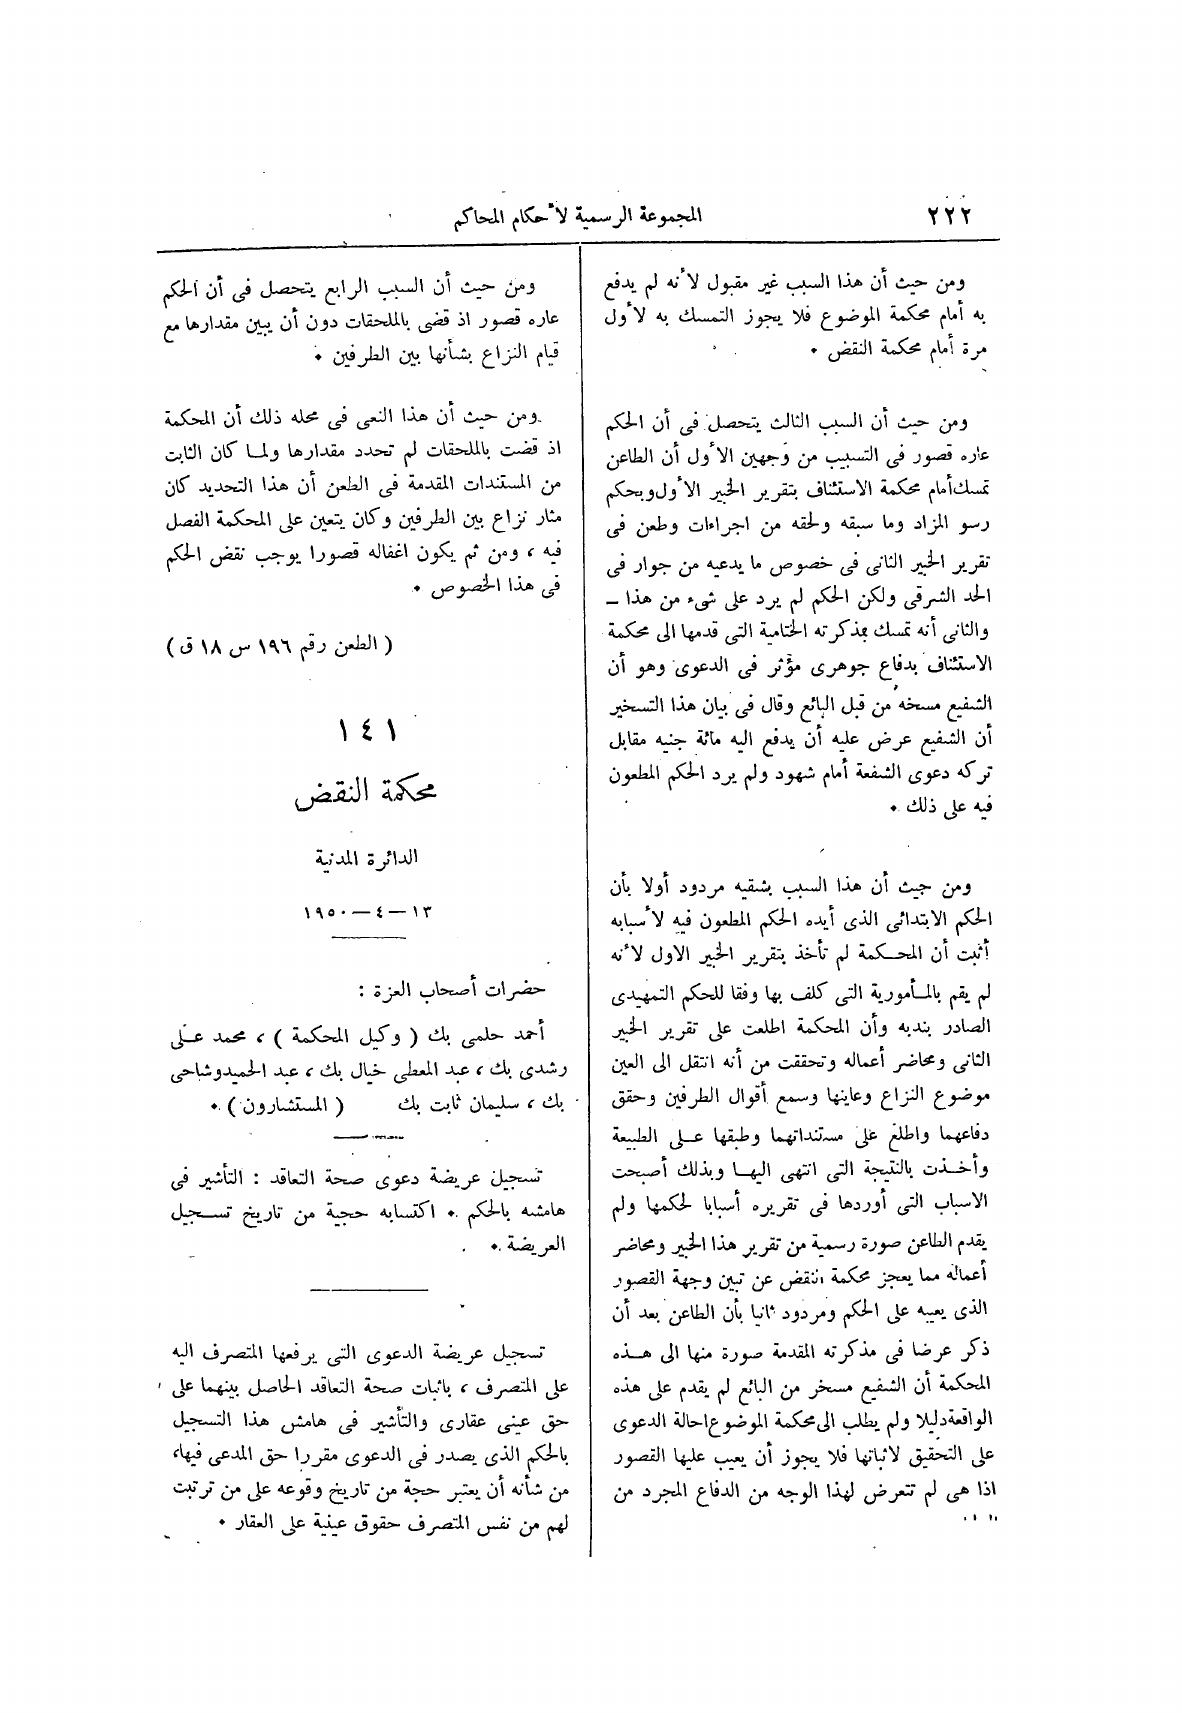 ٢٢٢
المجموعة الرسمية لأحكام المحاكم
ومن حيث أن هذا السبب غير مقبول لأنه لم يدفع
به أمام محكمة الموضوع فلا يجوز التمسك به لأول
مرة أمام محكمة النقض .
ومن حيث أن السبب الثالث يتحصل فى أن الحكم
عاره قصور فى التسبيب من وجهين الأول أن الطاعن
تمسك أمام محكمة الاستئناف بتقرير الخبير الأول وبحكم
رسو المزاد وما سبقه ولحقه من اجراءات وطعن فى
تقرير الخبير الثانى فى خصوص ما يدعيه من جوار فى
الحد الشرقى ولكن الحكم لم يرد على شىء من هذا —
والثانى أنه تمسك بمذكرته الختامية التى قدمها الى محكمة
الاستئناف بدفاع جوهرى مؤثر فى الدعوى وهو أن
الشفيع مسخه من قبل البائع وقال فى بيان هذا التسخير
أن الشفيع عرض عليه أن يدفع اليه مائة جنيه مقابل
تركه دعوى الشفعة أمام شهود ولم يرد الحكم المطعون
فيه على ذلك .
ومن حيث أن هذا السبب بشقيه مردود أولا بأن
الحكم الابتدائى الذى أيده الحكم المطعون فيه لأسبابه
أثبت أن المحكمة لم تأخذ بتقرير الخبير الاول لأنه
لم يقم بالمأمورية التى كلف بها وفقا للحكم التمهيدى
الصادر بندبه وأن المحكمة اطلعت على تقرير الخبير
الثانى ومحاضر أعماله وتحققت من أنه انتقل الى العين
موضوع النزاع وعاينها وسمع أقوال الطرفين وحقق
دفاعهما واطلع على مستنداتهما وطبقها على الطبيعة
وأخذت بالنتيجة التى انتهى اليها وبذلك أصبحت
الاسباب التى أوردها فى تقريره أسبابا لحكمها ولم
يقدم الطاعن صورة رسمية من تقرير هذا الخبير ومحاضر
أعماله مما يعجز محكمة النقض عن تبين وجهة القصور
الذى يعيبه على الحكم ومردود ثانيا بأن الطاعن بعد أن
ذكر عرضا فى مذكرته المقدمة صورة منها الى هذه
المحكمة أن الشفيع مسخر من البائع لم يقدم على هذه
الواقعة دليلا ولم يطلب الى محكمة الموضوع احالة الدعوى
على التحقيق لاثباتها فلا يجوز أن يعيب عليها القصور
اذا هى لم تتعرض لهذا الوجه من الدفاع المجرد من
ومن حيث أن السبب الرابع يتحصل فى أن الحكم
عاره قصور اذ قضى بالملحقات دون أن يبين مقدارها مع
قيام النزاع بشأنها بين الطرفين .
ومن حيث أن هذا النعى فى محله ذلك أن المحكمة
اذ قضت بالملحقات لم تحدد مقدارها ولما كان الثابت
من المستندات المقدمة فى الطعن أن هذا التحديد كان
مثار نزاع بين الطرفين وكان يتعين على المحكمة الفصل
فيه ، ومن ثم يكون اغفاله قصورا يوجب نقض الحكم
فى هذا الخصوص .
( الطعن رقم ١٩٦ س ١٨ ق )
١٤١
محكمة النقض
الدائرة المدنية
١٣ — ٤ — ١٩٥٠
حضرات أصحاب العزة :
أحمد حلمى بك ( وكيل المحكمة ) ، محمد على
رشدى بك ، عبد المعطى خيال بك ، عبد الحميد وشاحى
بك ، سليمان ثابت بك ( المستشارون ) .
تسجيل عريضة دعوى صحة التعاقد : التأشير فى
هامشه بالحكم . اكتسابه حجية من تاريخ تسجيل
العريضة .
تسجيل عريضة الدعوى التى يرفعها المتصرف اليه
على المتصرف ، باثبات صحة التعاقد الحاصل بينهما على
حق عينى عقارى والتأشير فى هامش هذا التسجيل
بالحكم الذى يصدر فى الدعوى مقررا حق المدعى فيها،
من شأنه أن يعتبر حجة من تاريخ وقوعه على من ترتبت
لهم من نفس المتصرف حقوق عينية على العقار .